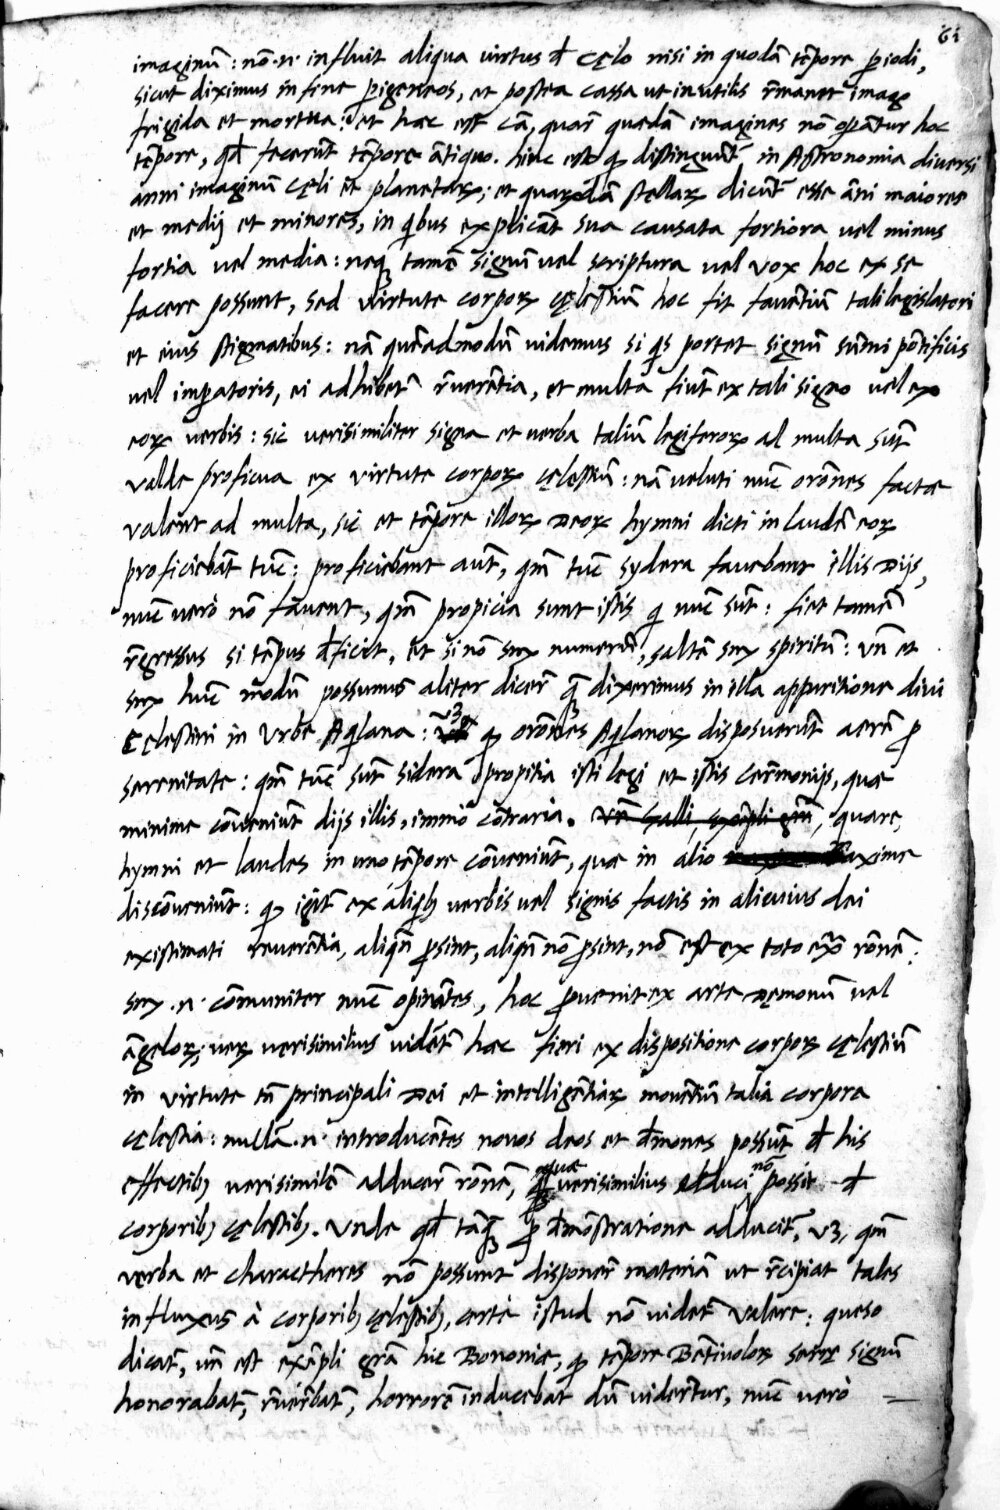 61
imaginũ: nõ .n. influit aliqua virtus đ Cęlo nisi in quodã tẽpore ꝑiodi,
sicut diximus in fine ꝑigeneos, et postea cassa ut inutilis r̃manet imago
frigida et mortua: et hæc est cã, quar̃ quedã imagines nõ oꝑãtur hoc
tẽpore, qđ fecerũt tẽpore ãtiquo. hinc est ꝙ distinguũt̃ in Astronomia diversi
anni imaginũ cęli et planetaꝝ; et quarũdã stellaꝝ dicũt̃ esse ãni maiores
et medij et minores, in qibus explicãt sua causata fortiora vel minus
fortia vel media: neqꝫ tamẽ signũ vel scriptura vel vox hoc ex se
facere possunt, sed virtute corpoꝝ cęlestiũ hoc fit favẽtiũ tali legislatori
et eius stigmatibus: nã quẽadmodũ videmus si qis portet signũ sũmi põtificis
vel imꝑatoris, ei adhibet̃ r̃verẽtia, et multa fiũt ex tali signo vel ex
eoꝝ verbis: sic verisimiliter signa et verba taliũ legiferoꝝ al multa sũt
valde proficua ex virtute corpoꝝ cęlestiũ: nã veluti nũc orõnes factæ
valẽnt ad multa, sic et tẽpore illoꝝ Deoꝝ hymni dicti in laudẽ eoꝝ
proficiebãt tũc; proficiebant aũt, qm̃ tũc sydera favebant illis Dijs,
nũc vero nõ favent, qm̃ propicia sunt istis qi nũc sũt: fiet tamẽ
r̃gressus si tẽpus đficit, et si nõ sm̃ numerũ, saltẽ sm̃ spiritũ: vñ et
sm̃ hũc modũ possumus aliter dicer̃ qꝫ dixerimus in illa apparitione divi
Cęlestini in Urbe Aqilana: vꝫ ꝙ orõnes Aqilanoꝝ disposuerũt aerẽ ꝓ
serenitate: qm̃ tũc sũt sidera propitia isti legi et istis cerimonijs, quæ
minime cõveniũt dijs illis, immo cõtraria. quare,
hymni et laudes in uno tẽpore cõveniũt, quæ in alio maxime
discõveniũt: ꝙ igit̃ ex aliqibꝫ verbis vel signis factis in alicuius dei
existimati reverẽtia, aliqñ ꝓsint, aliqñ nõ ꝓsint, nõ est ex toto ext̃ rõnẽ:
sm̃ .n. cõmuniter nũc opinãtes, hoc ꝓvenit ex arte Dęmonũ vel
ãgeloꝝ; veꝝ verisimilius vidẽt̃ hæc fieri ex dispositione corpoꝝ cęlestiũ
in virtute tñ principali Dei et intelligẽtiaꝝ movẽtiũ talia corpora
cęlestia: nullã .n. introducẽtes novos deos et đmones possũt đ his
effectibꝫ verisimilẽ adducer̃ rõnẽ, quæ verisimilius adduci nõ possit đ
corporibꝫ cęlestibꝫ. Unde qđ tãqꝫ ꝓ đmõstratione adducit̃, vꝫ, qm̃
verba et characthe­res nõ possunt disponer̃ materiã ut r̃cipiat tales
influxus à corporibꝫ cęlestibꝫ, certè istud nõ videt̃ valere: queso
dicat̃, vñ est exẽpli gr̃ã hic Bononiæ, ꝙ tẽpore Bẽtivoloꝝ serræ signũ
honorabat̃, r̃verebat̃, horrorẽ inducebat dũ viderẽtur, nũc verò